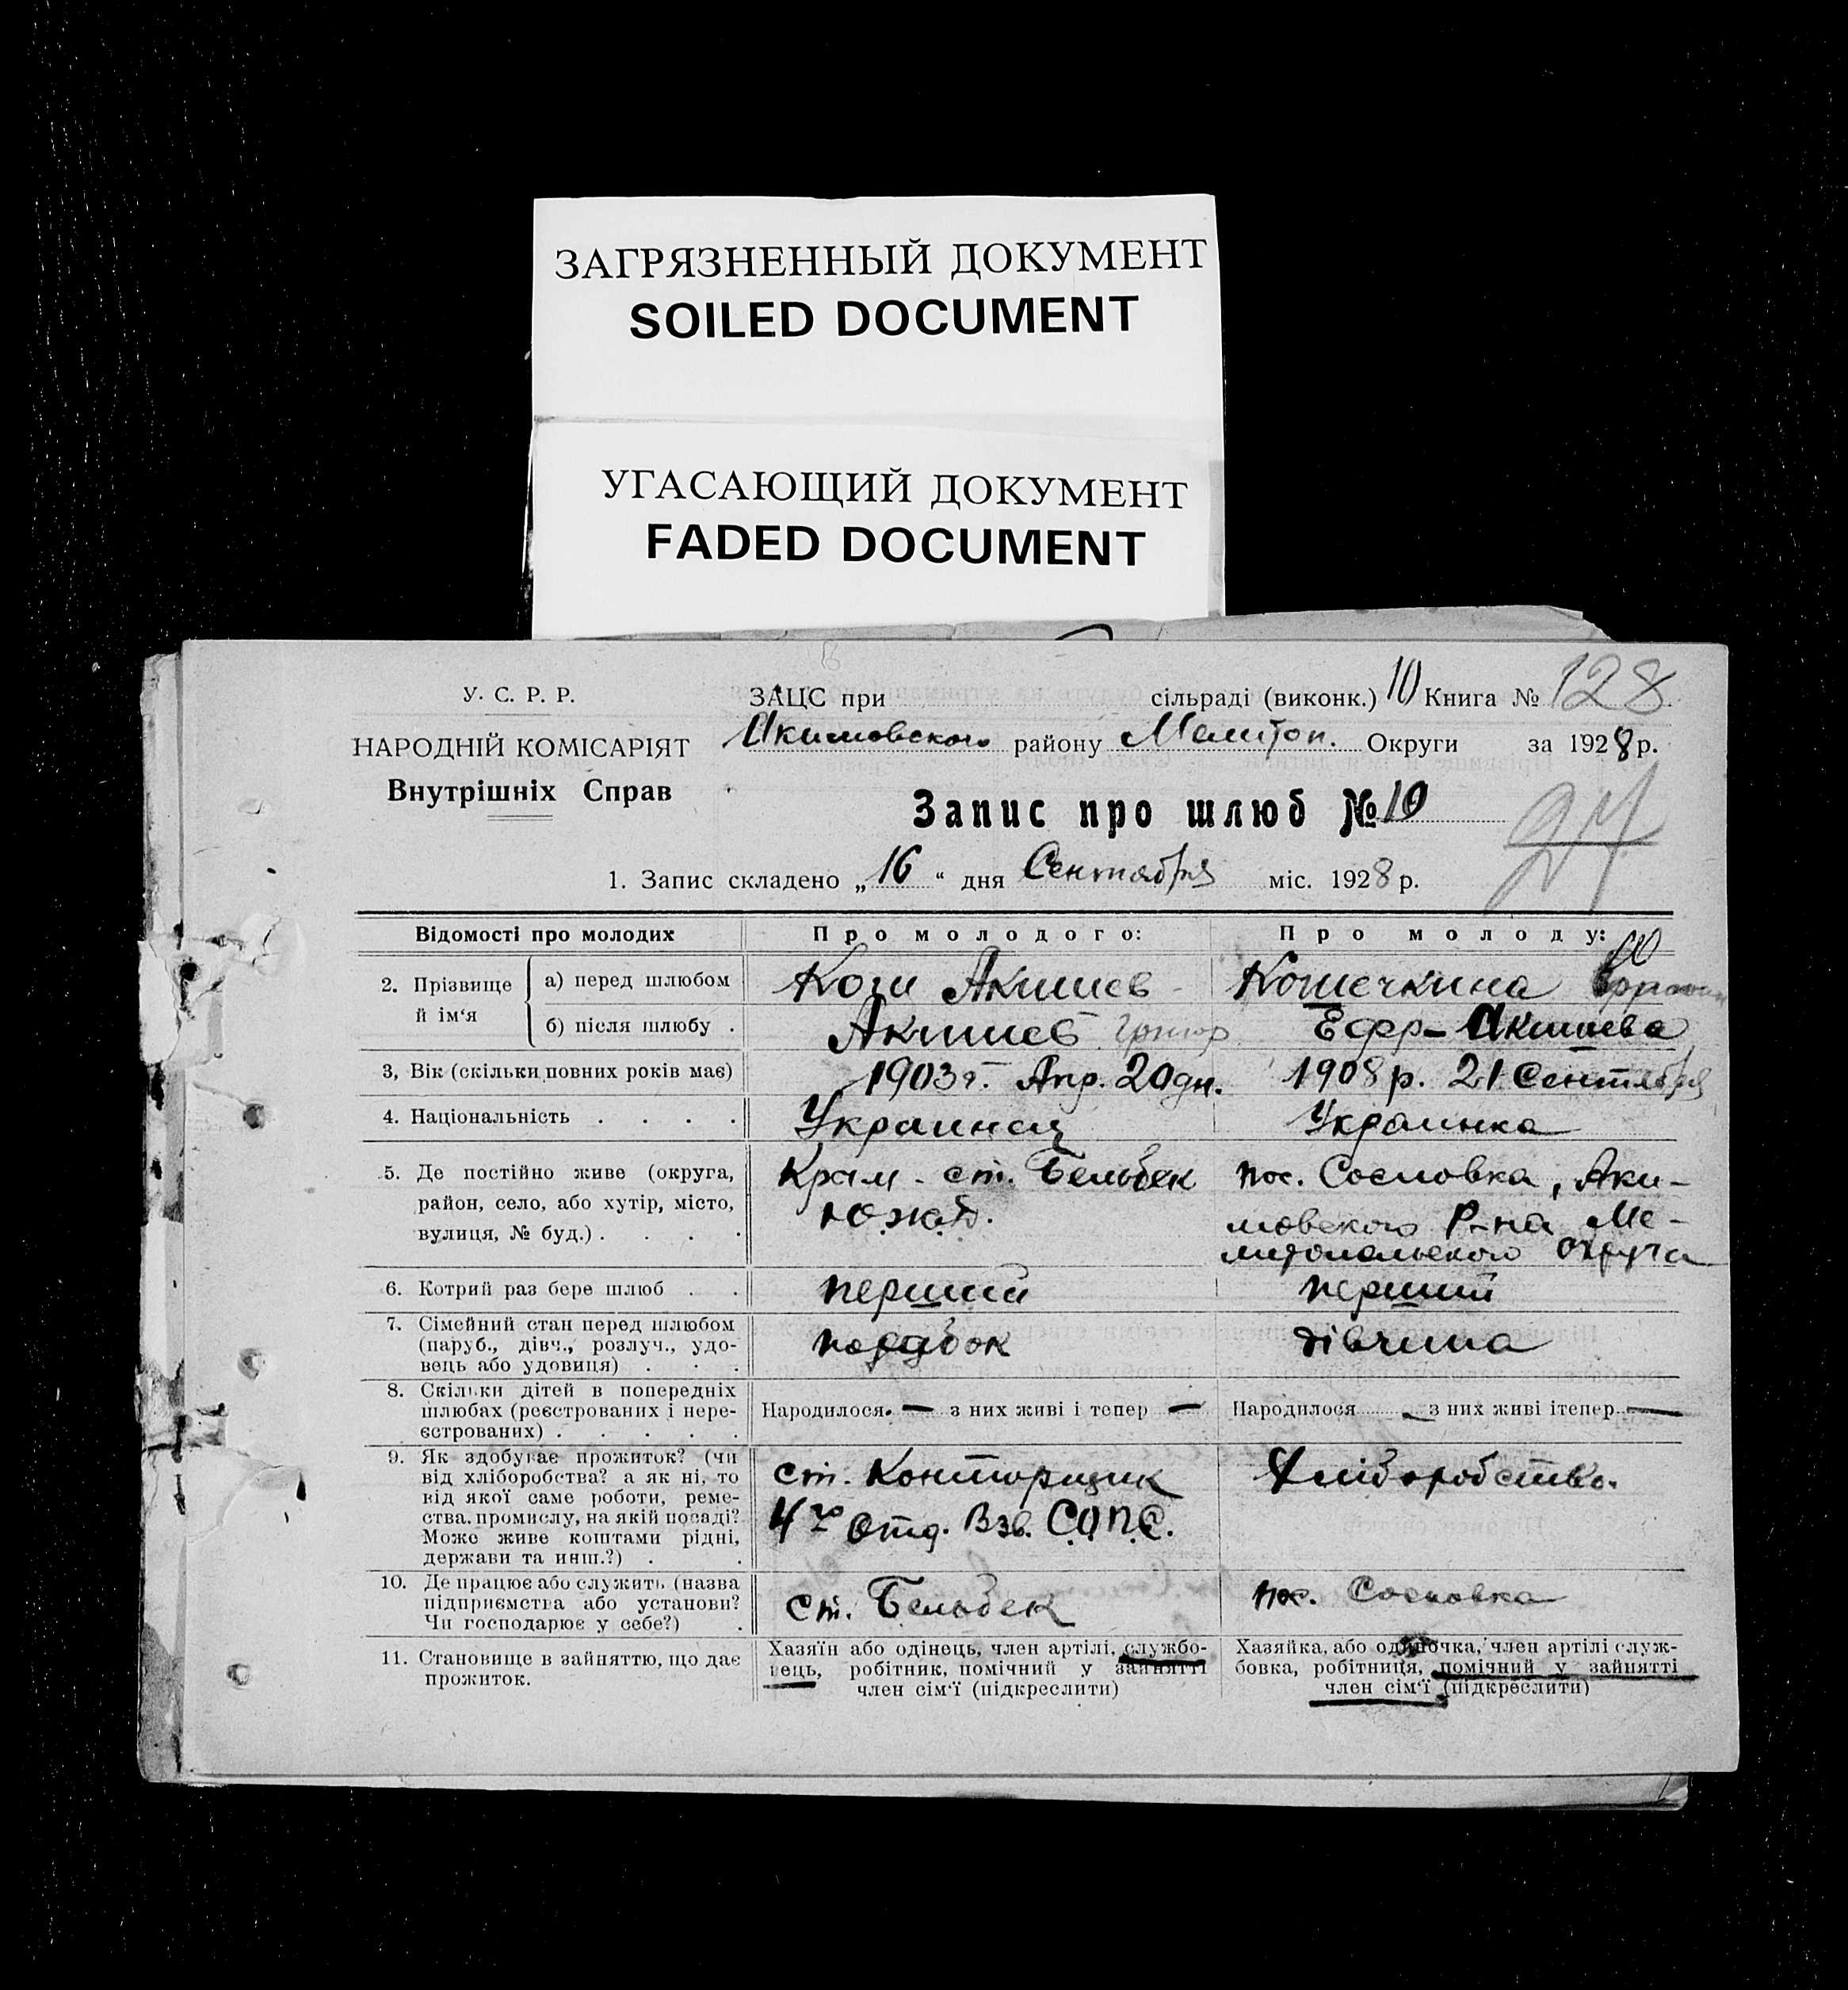 ЗАГРЯЗНЕННЫЙ ДОКУМЕНТ
SOILED DOCUMENT
УГАСАЮЩИЙ ДОКУМЕНТ
FADED DOCUMENT
У. С. Р. Р.
НАРОДНІЙ КОМІСАРІЯТ
Внутрішніх Справ
ЗАЦС при сільраді (виконк.) 10 Книга № 128
Акимовского району Мелитоп. Округи за 1928 р.
Запис про шлюб № 10
1. Запис складено „16“ дня Сентября міс. 1928 р.
Відомості про молодих Про молодого: Про молоду:
2. Прізвище й ім‘я
а) перед шлюбом Акишев Кошечкина
б) після шлюбу . Акишев Ефр- Акишева
3, Вік (скільки повних років має) 1903 г. Апр. 20 дн. 1908 р. 21 Сентября
4. Національність . . . . Украинец Украинка
5. Де постійно живе (округа, район, село, або хутір, місто, вулиця, № буд.) . . . .
Крим - ст. Бельбек
Юж.
пос. Сосновка, Аки-
мовского Р-на Ме-
литопольского Округа
6. Котрий раз бере шлюб . . перший перший
7. Сімейний стан перед шлюбом (паруб., дівч., розлуч., удовець або удовиця) . . . парубок дівчина
8. Скільки дітей в попередніх шлюбах (реєстрованих і нереєстрованих) . . . . .
Народилося — з них живі і тепер — Народилося — з них живі ітепер —
9. Як здобуває прожиток? (чи
від хліборобства? а як ні, то
від якої саме роботи, реме-
ства, промислу, на якій посаді?
Може живе коштами рідні,
держави та инш.?) . .
ст. Конторщик
4го Отд. Взв. С.О.П.С.
Хліборобство.
10. Де працює або служить (назва
підприємства або установи?
Чи господарює у себе?) .
ст. Бельбек
пос. Сосновка
11. Становище в зайняттю, що дає
прожиток.
Хазяїн або одінець, член артілі, службо-
вець, робітник, помічний у зайнятті
член сім‘ї (підкреслити)
Хазяйка, або одиночка, член артілі служ-
бовка, робітниця, помічний у зайнятті
член сім‘ї (підкреслити)